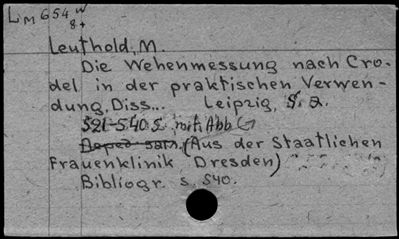 LM 654 w
8+
Leuthold, M.
Die Wehenmessung nach Cro-
del in der praktischen Verwen-
dung. Diss... Leipzig, S. a.
521-540 S. mit Abb
(Aus der Staatlichen
Frauenklinik Dresden)
Bibliogr. s. 540.